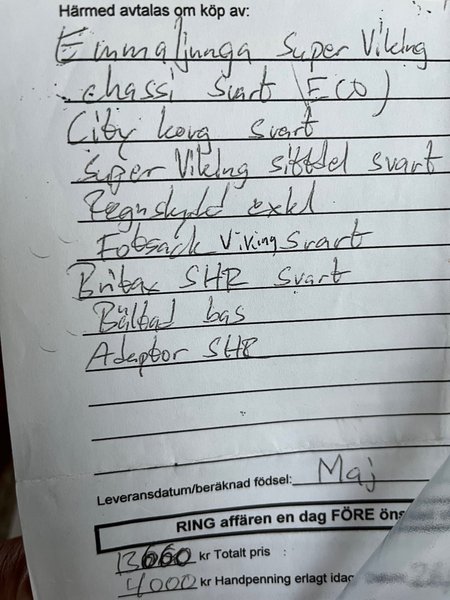 Härmed avtalas om köp av:
Emmaljunga Super Viking
chassi svart (ECO)
City korg svart
Super Viking sittdel svart
Regnskydd exkl
Fotsack Viking svart
Britax SHR svart
Bältad bas
Adaptor SHR
Leveransdatum/beräknad födsel: Maj
RING affären en dag FÖRE öns
13660 kr Totalt pris :
4000 kr Handpenning erlagt idag